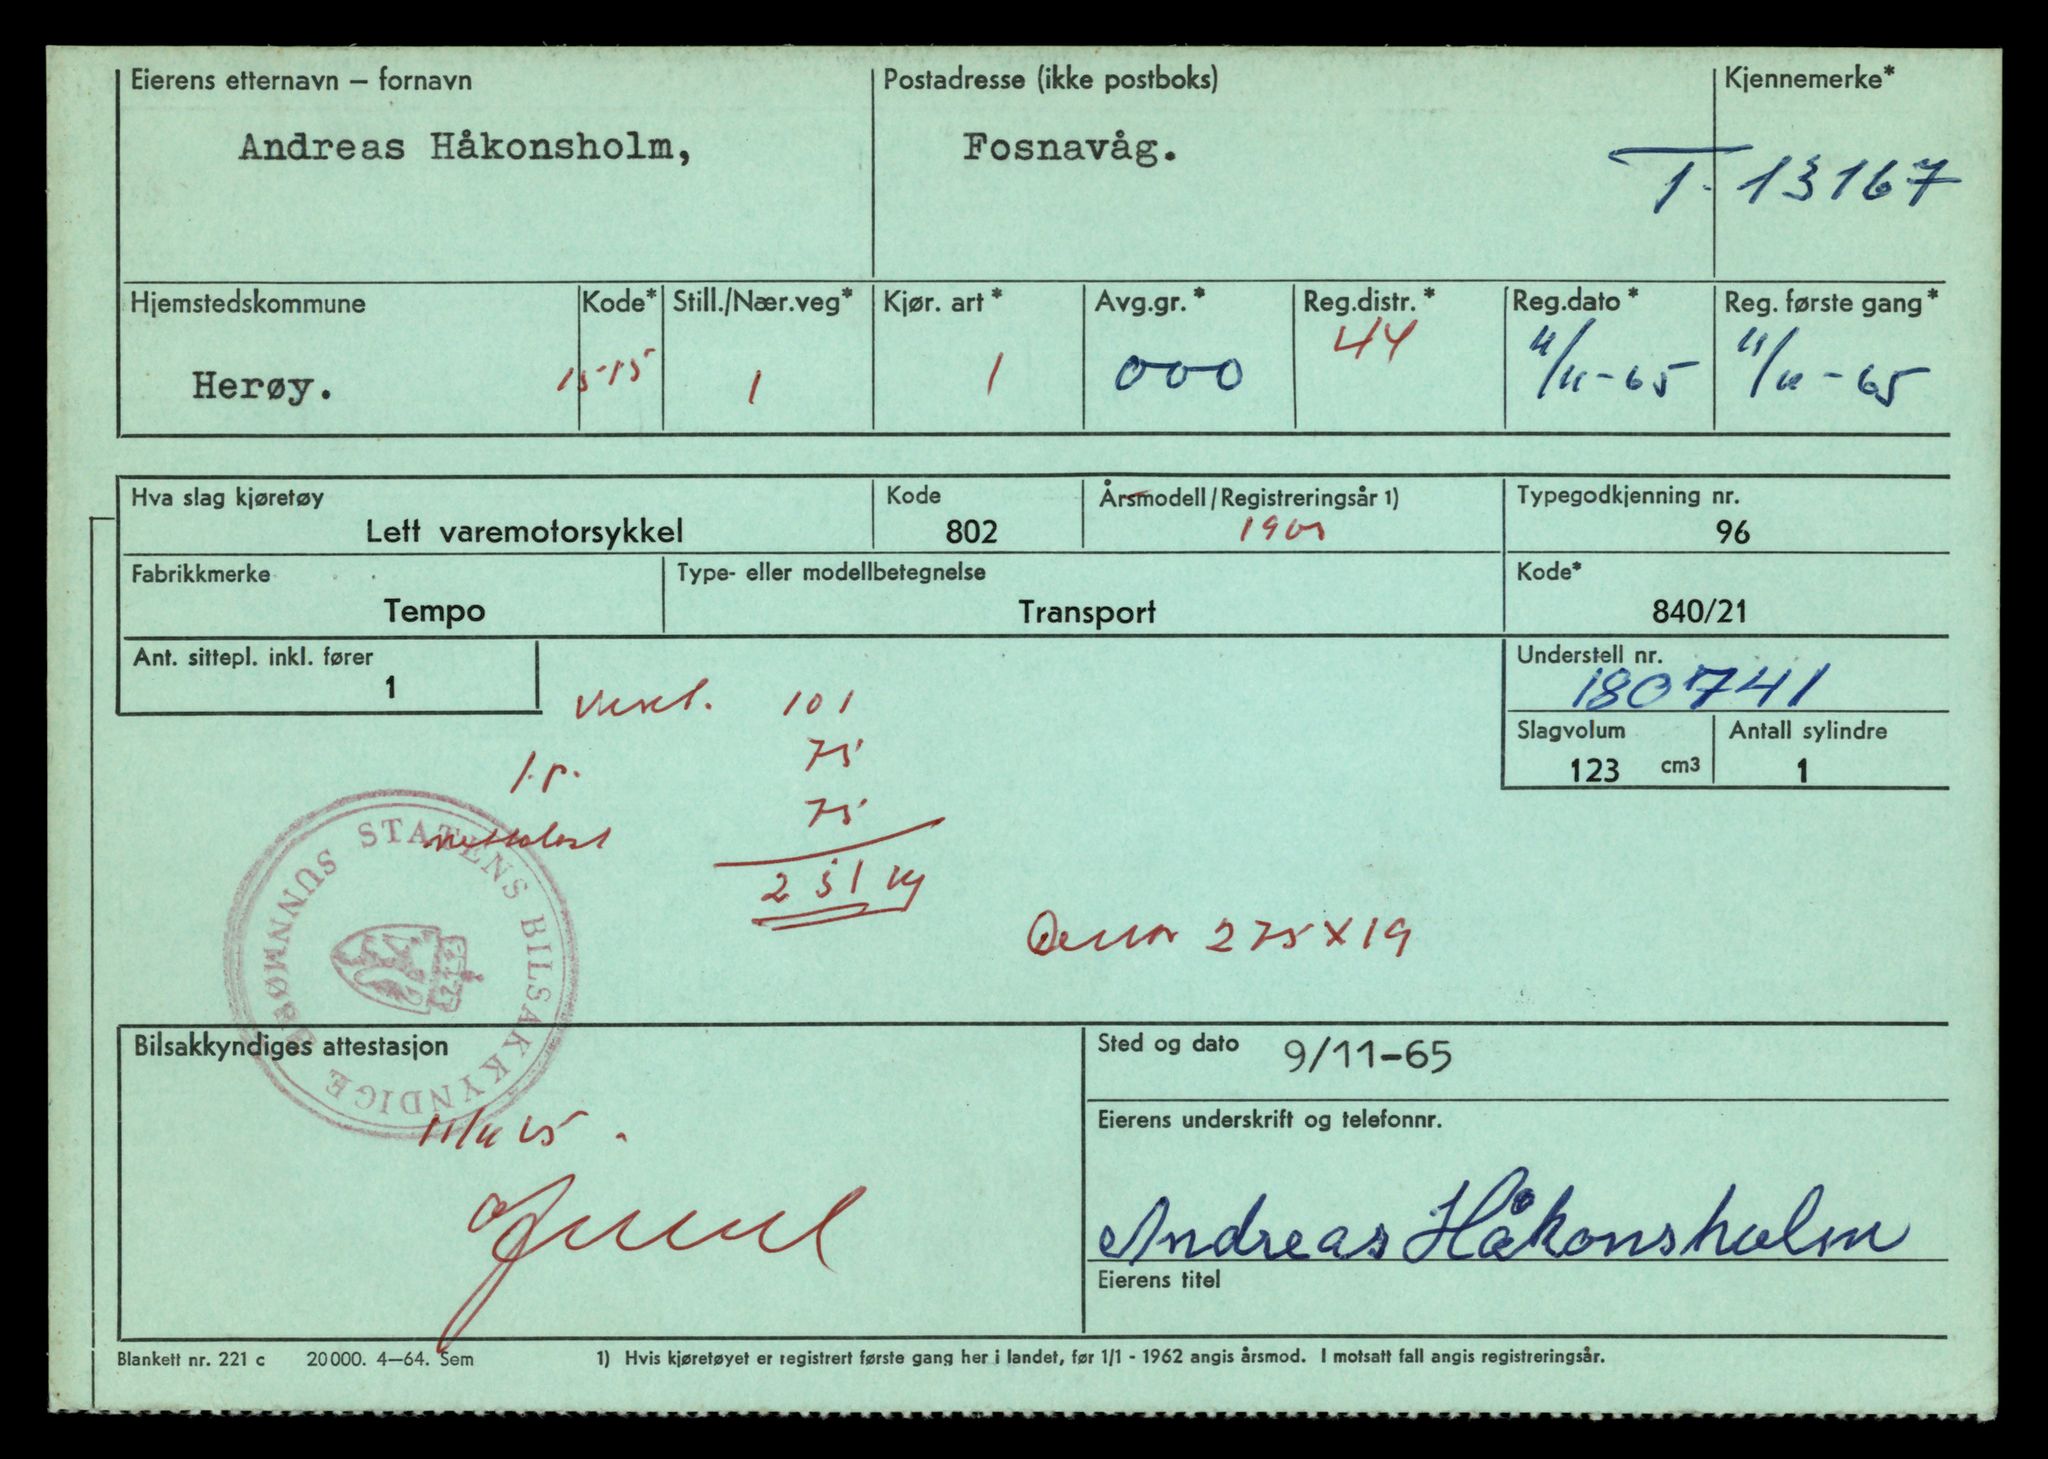 Eierens etternavn – fornavn Postadresse (ikke postboks) Kjennemerke*
Andreas Håkonsholm, Fosnavåg. T-13167
Hjemstedskommune Kode* Still./Nær.veg* Kjør. art* Avg.gr.* Reg.distr.* Reg.dato* Reg. første gang*
Herøy. 1515 1 1 000 44 11/11-65 11/11-65
Hva slag kjøretøy Kode Årsmodell/Registreringsår 1) Typegodkjenning nr.
Lett varemotorsykkel 802 1965 96
Fabrikkmerke Type- eller modellbetegnelse Kode*
Tempo Transport 840/21
Ant. sittepl. inkl. fører Understell nr.
1 180741
Slagvolum Antall sylindre
123 cm3 1
101
1.p. 75
nettolast 75
251 kg
275 X 19
STATENS BILSAKKYNDIGE SUNNMØRE
Bilsakkyndiges attestasjon Sted og dato 9/11-65
11/11 65.
Eierens underskrift og telefonnr.
Andreas Håkonsholm
Eierens titel
Blankett nr. 221 c 20000. 4–64. Sem 1) Hvis kjøretøyet er registrert første gang her i landet, før 1/1 - 1962 angis årsmod. I motsatt fall angis registreringsår.